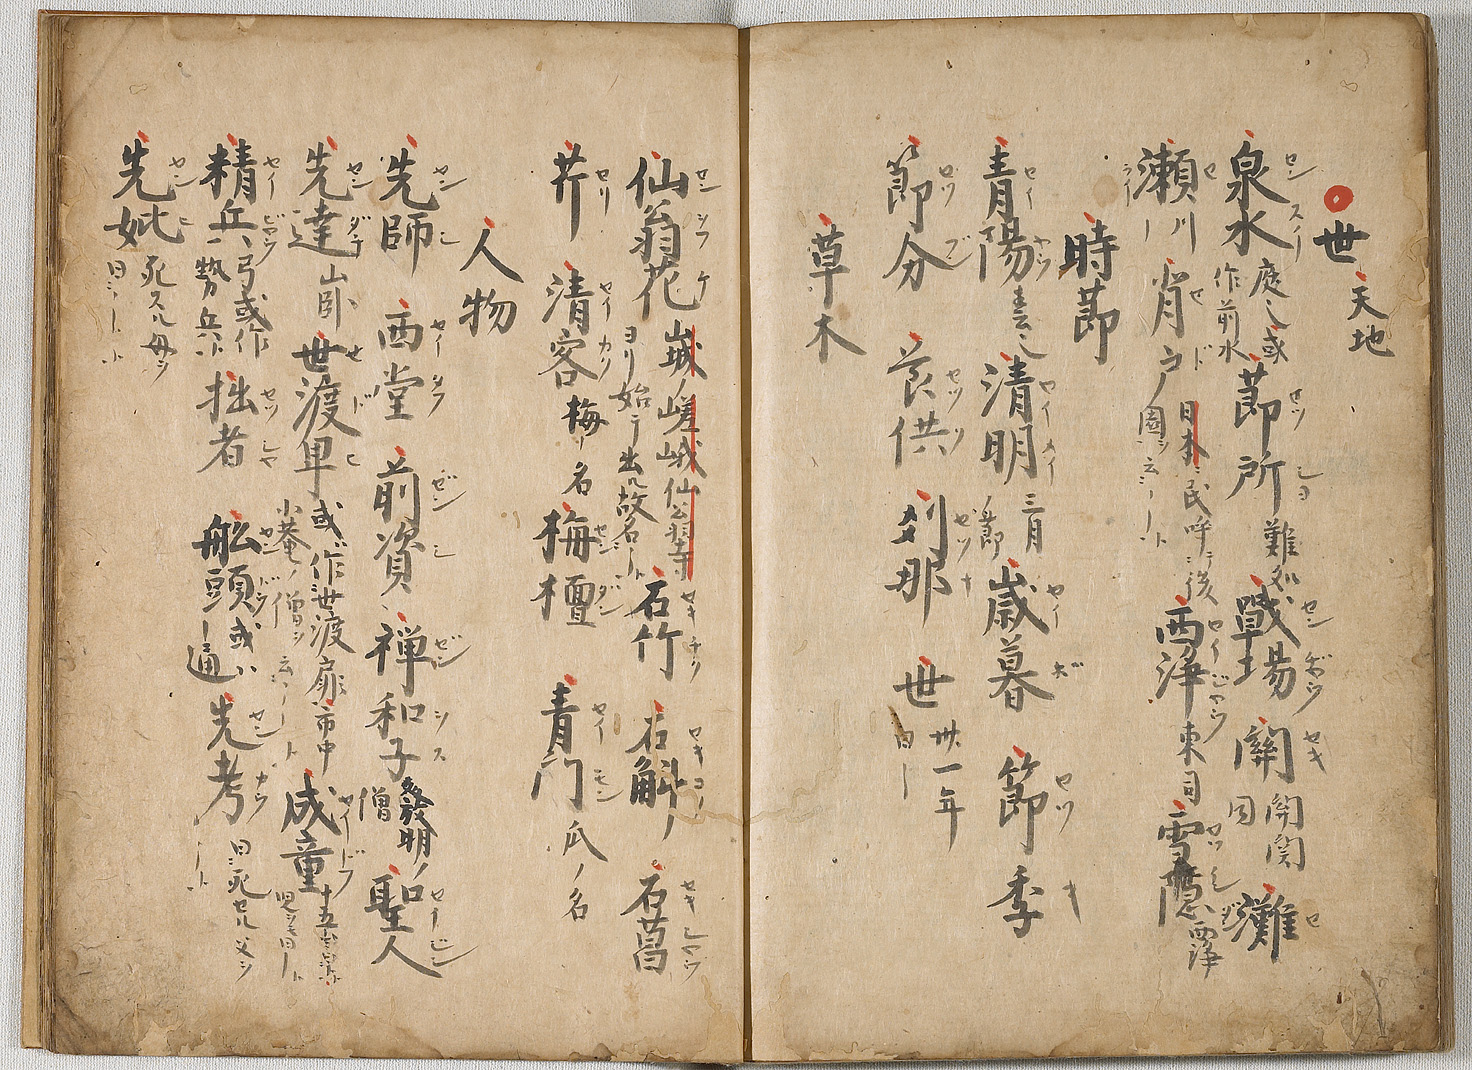 世 天地
泉水 庭之或作前水 節所 難処 戦場 關 開関同 灘
瀬川 背戸 日本ニ民呼テ後園ヲ云 西浄 東司 雪隠 西浄
時節
青陽 春云之 清明 三月ノ節 歳暮 節季
節分 節供 刹那 世 卅一年曰
草木
仙翁花 山城ノ嵯峨仙翁寺ヨリ始テ出ル故名 石竹 石斛 石菖
芹 清客 梅ノ名 栴檀 青門 瓜ノ名
人物
先師 西堂 前資 禅和子 發明ノ僧 聖人
先達 山臥 世渡卑 或ハ作世渡扉 市中小菴ノ僧ヲ云 成童 十五
精兵 弓或作勢兵 拙者 舩頭 或ハ通 先考 曰死セル父ヲ
先妣 死スル母ヲ曰